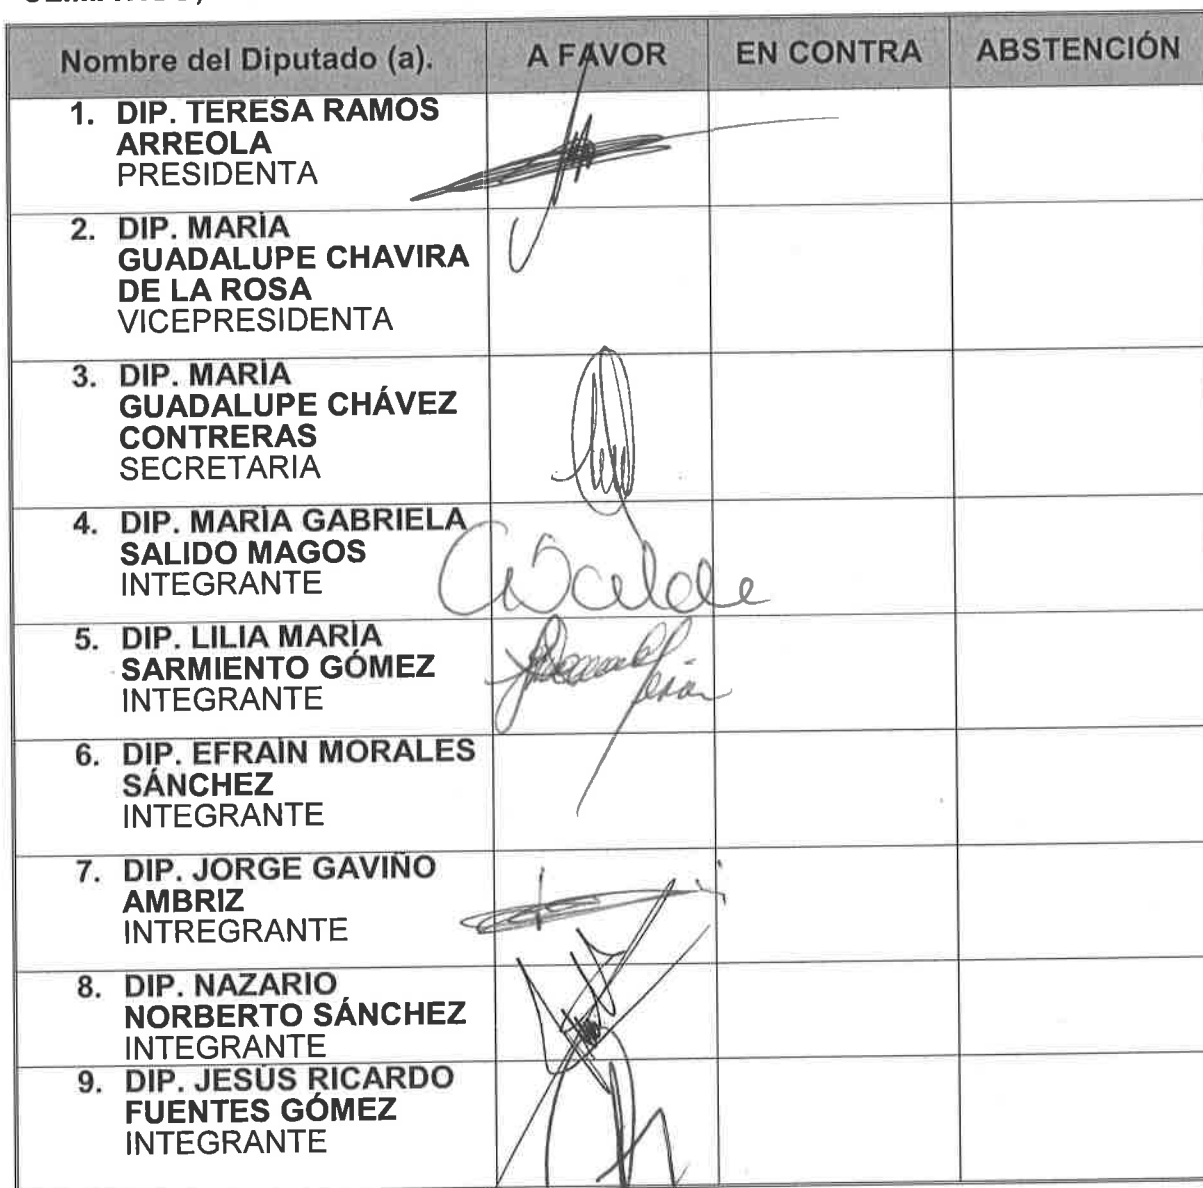 Nombre del Diputado (a). A FAVOR EN CONTRA ABSTENCIÓN
1. DIP. TERESA RAMOS
ARREOLA
PRESIDENTA
2. DIP. MARÍA
GUADALUPE CHAVIRA
DE LA ROSA
VICEPRESIDENTA
3. DIP. MARÍA
GUADALUPE CHÁVEZ
CONTRERAS
SECRETARIA
4. DIP. MARÍA GABRIELA
SALIDO MAGOS
INTEGRANTE
5. DIP. LILIA MARÍA
SARMIENTO GÓMEZ
INTEGRANTE
6. DIP. EFRAÍN MORALES
SÁNCHEZ
INTEGRANTE
7. DIP. JORGE GAVIÑO
AMBRIZ
INTREGRANTE
8. DIP. NAZARIO
NORBERTO SÁNCHEZ
INTEGRANTE
9. DIP. JESÚS RICARDO
FUENTES GÓMEZ
INTEGRANTE